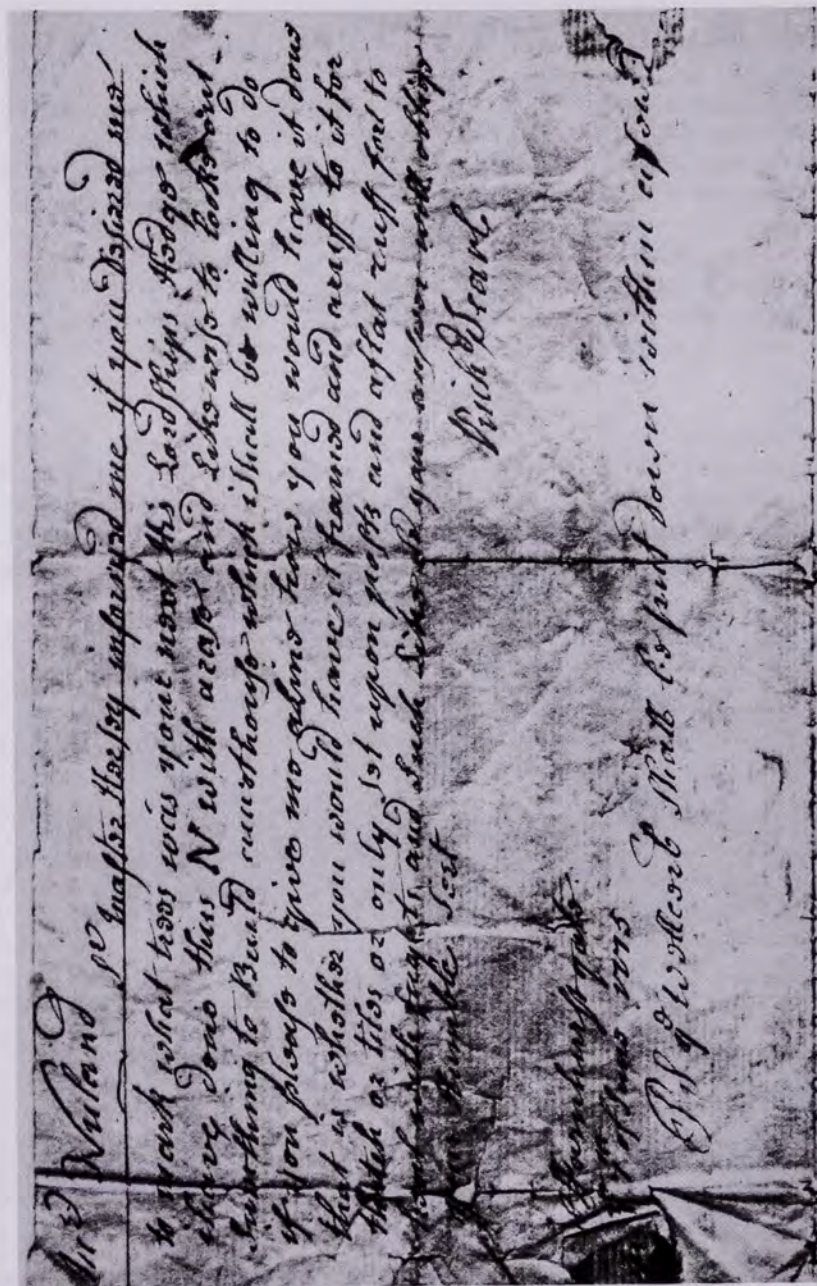 Mr Nuland
Sr Master Hersey informed me if you Desired me
to mark what trees was yout next his Lordships Hedge which
i have Done thus N with arasor and Likewise to look out
Sumthing to Build cunthouse which i shall be willing to Do
if you please to give me aline how you would have it Done
that is whether you would have it framed and aruff to it for
thatch or tiles or only set upon posts and aflat ruff for to
with and such Like So your answer will oblige
your humble Sert
Rich Searl
1775
PS ye wollcorb Shall be put Down within